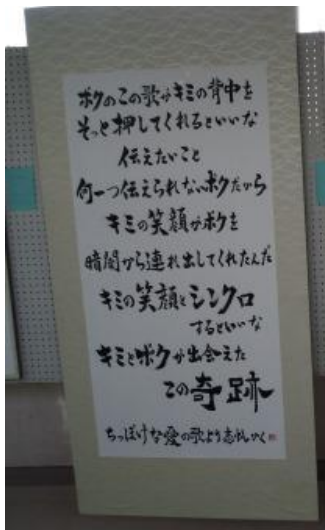 ボクのこの歌がキミの背中を
そっと押してくれるといいな
伝えたいこと
何一つ伝えられないボクだから
キミの笑顔がボクを
暗闇から連れ出してくれたんだ
キミの笑顔とシンクロ
するといいな
キミとボクが出会えた
この奇跡
ちっぽけな愛の歌より